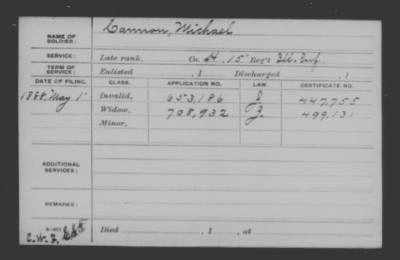 NAME OF SOLDIER: Cannon, Michael
SERVICE: Late rank, Co. H, 15 Reg't Ill. Inf.
TERM OF SERVICE: Enlisted , 1 Discharged , 1
DATE OF FILING. CLASS. APPLICATION NO. LAW. CERTIFICATE NO.
1888, May 1 Invalid, 653,186 447,755
Widow, 708,932 499,131
Minor,
ADDITIONAL SERVICES:
REMARKS:
C.W.
Died , 1 , at